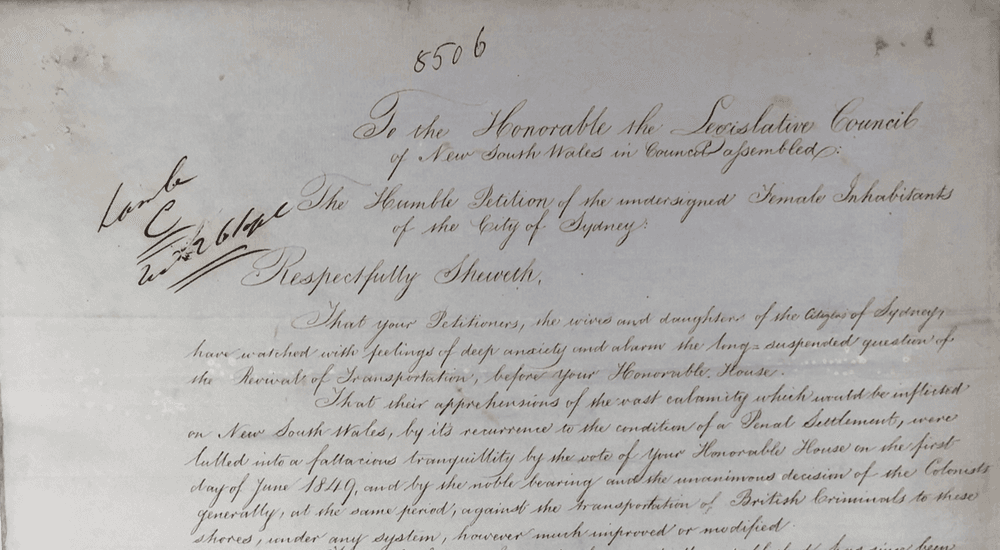 8506
To the Honorable the Legislative Council
of New South Wales in Council assembled:
Lamb
C
The Humble Petition of the undersigned Female Inhabitants
of the City of Sydney:
Respectfully Sheweth,
That your Petitioners, the wives and daughters of the Citizens of Sydney,
have watched with feelings of deep anxiety and alarm the long-suspended question of
the Revival of Transportation, before Your Honorable House.
That their apprehensions of the vast calamity which would be inflicted
on New South Wales, by it's recurrence to the condition of a Penal Settlement, were
lulled into a fallacious tranquillity by the vote of Your Honorable House on the first
day of June 1849, and by the noble bearing and the unanimous decision of the Colonists
generally, at the same period, against the transportation of British Criminals to these
shores, under any system, however much improved or modified.
has since been